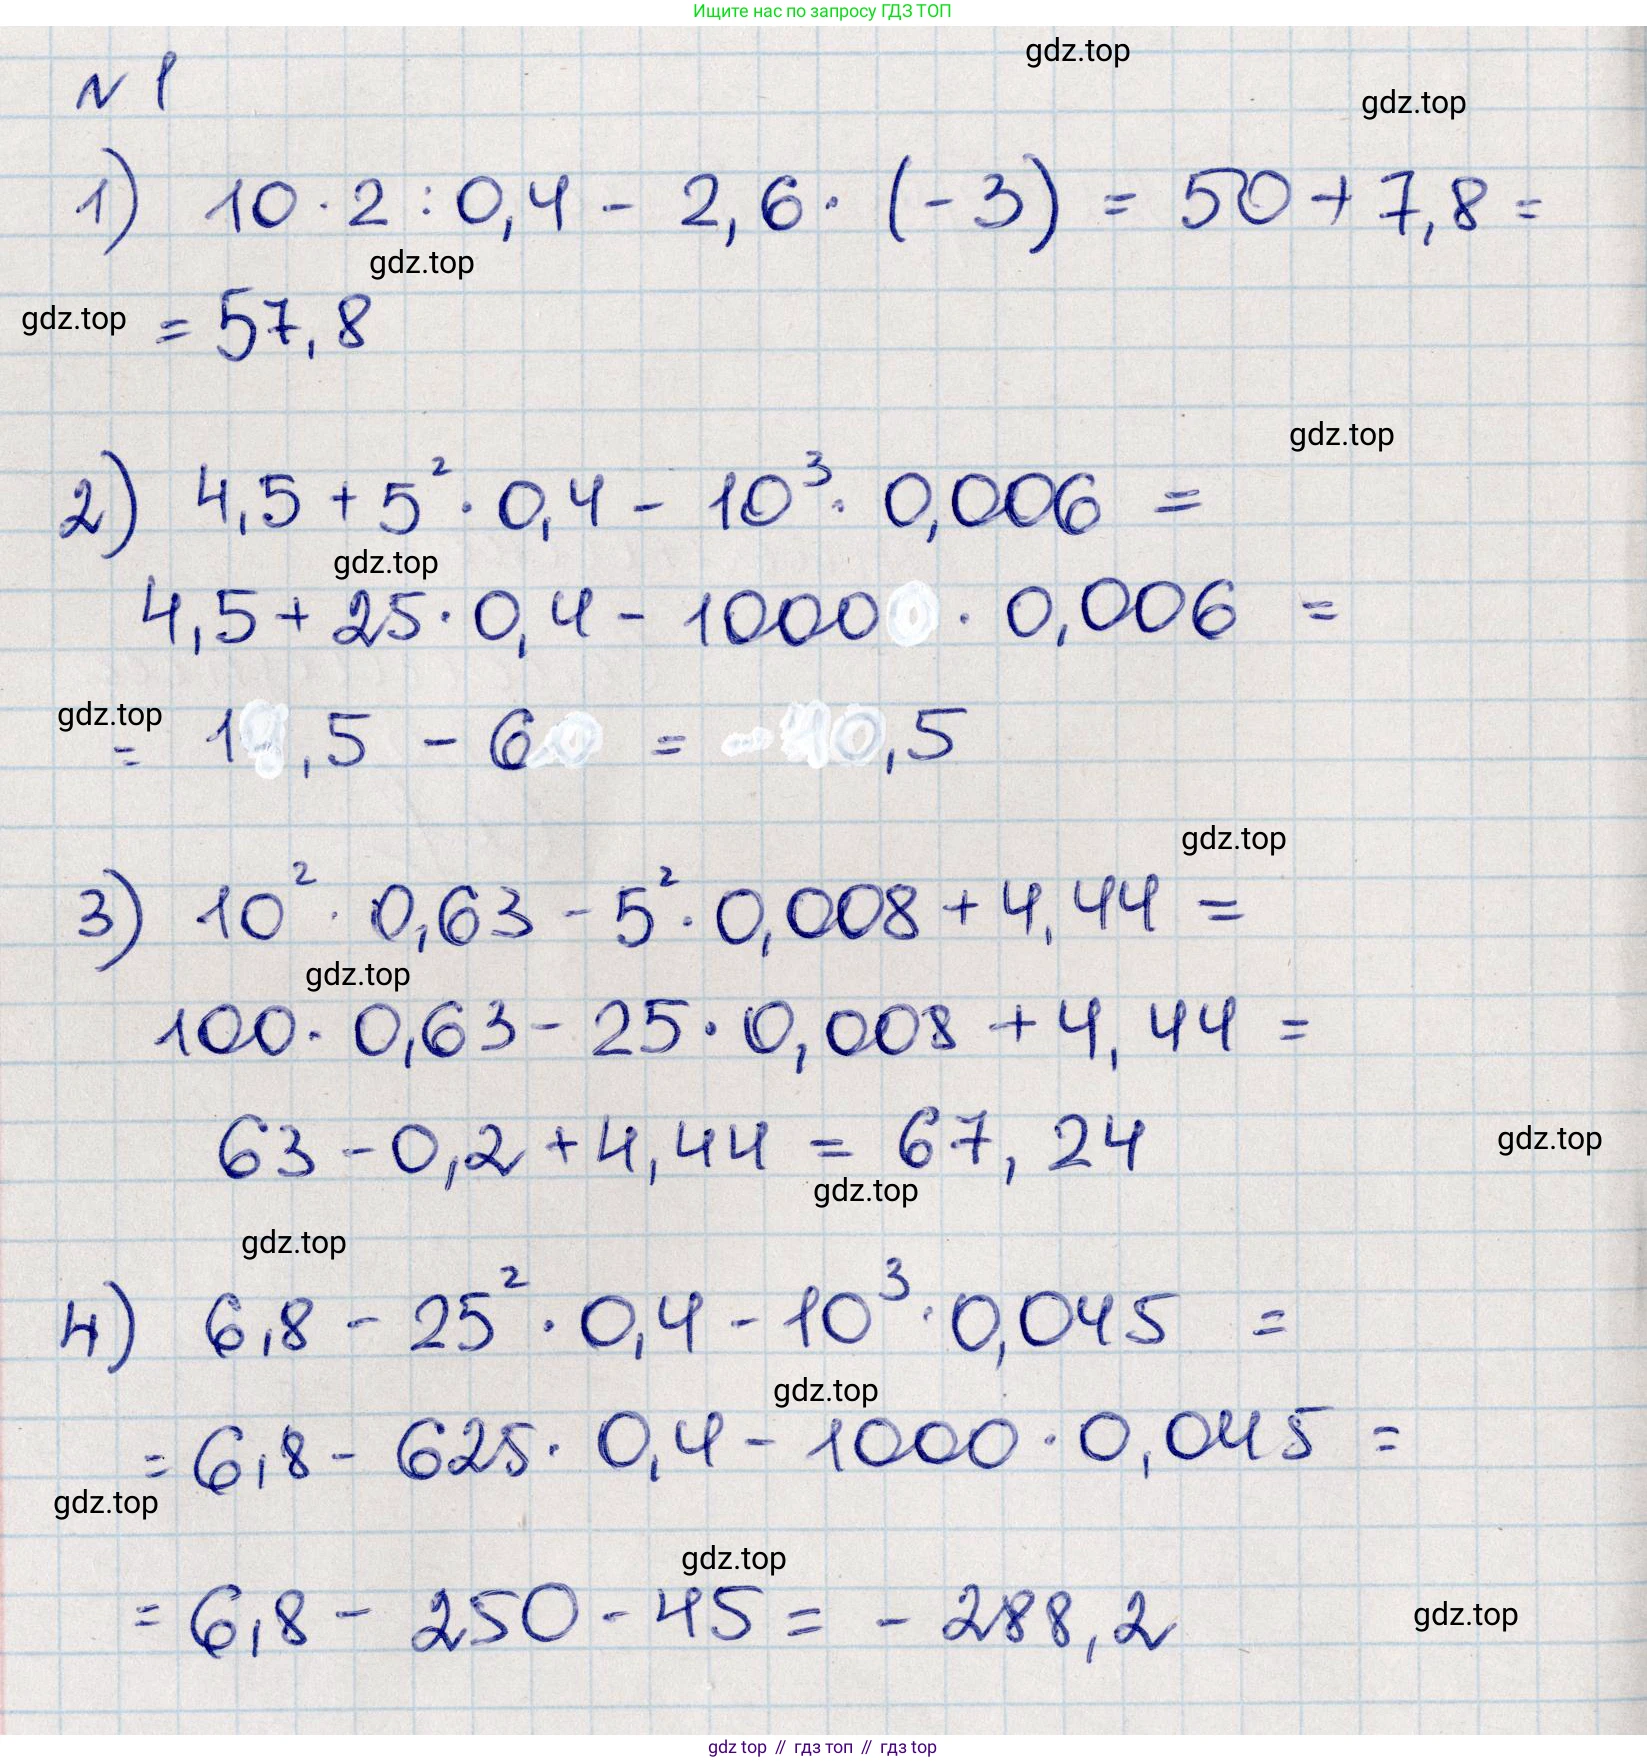 Ищите нас по запросу ГДЗ ТОП
gdz.top
N 1
gdz.top
1) 10 · 2 : 0,4 - 2,6 · (-3) = 50 + 7,8 =
gdz.top
gdz.top
= 57,8
gdz.top
2) 4,5 + 5² · 0,4 - 10³ · 0,006 =
gdz.top
4,5 + 25 · 0,4 - 1000 · 0,006 =
gdz.top
= 1 ,5 - 6 = ,5
gdz.top
3) 10² · 0,63 - 5² · 0,008 + 4,44 =
gdz.top
100 · 0,63 - 25 · 0,008 + 4,44 =
63 - 0,2 + 4,44 = 67,24
gdz.top
gdz.top
gdz.top
4) 6,8 - 25² · 0,4 - 10³ · 0,045 =
gdz.top
= 6,8 - 625 · 0,4 - 1000 · 0,045 =
gdz.top
gdz.top
= 6,8 - 250 - 45 = - 288,2
gdz.top
gdz top // гдз топ // гдз top